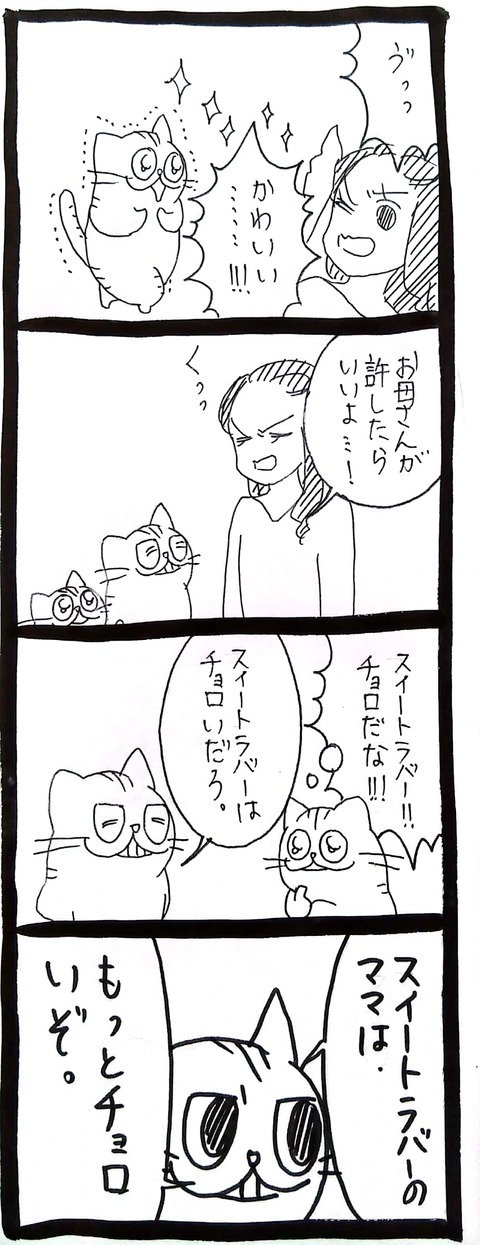 ゔっっ
かわいい
……!!!
お母さんが
許したら
いいよ…!
くっっ
スイートラバー!!
チョロだな!!!
スイートラバーは
チョロいだろう。
スイートラバーの
ママは.
もっとチョロ
いぞ。